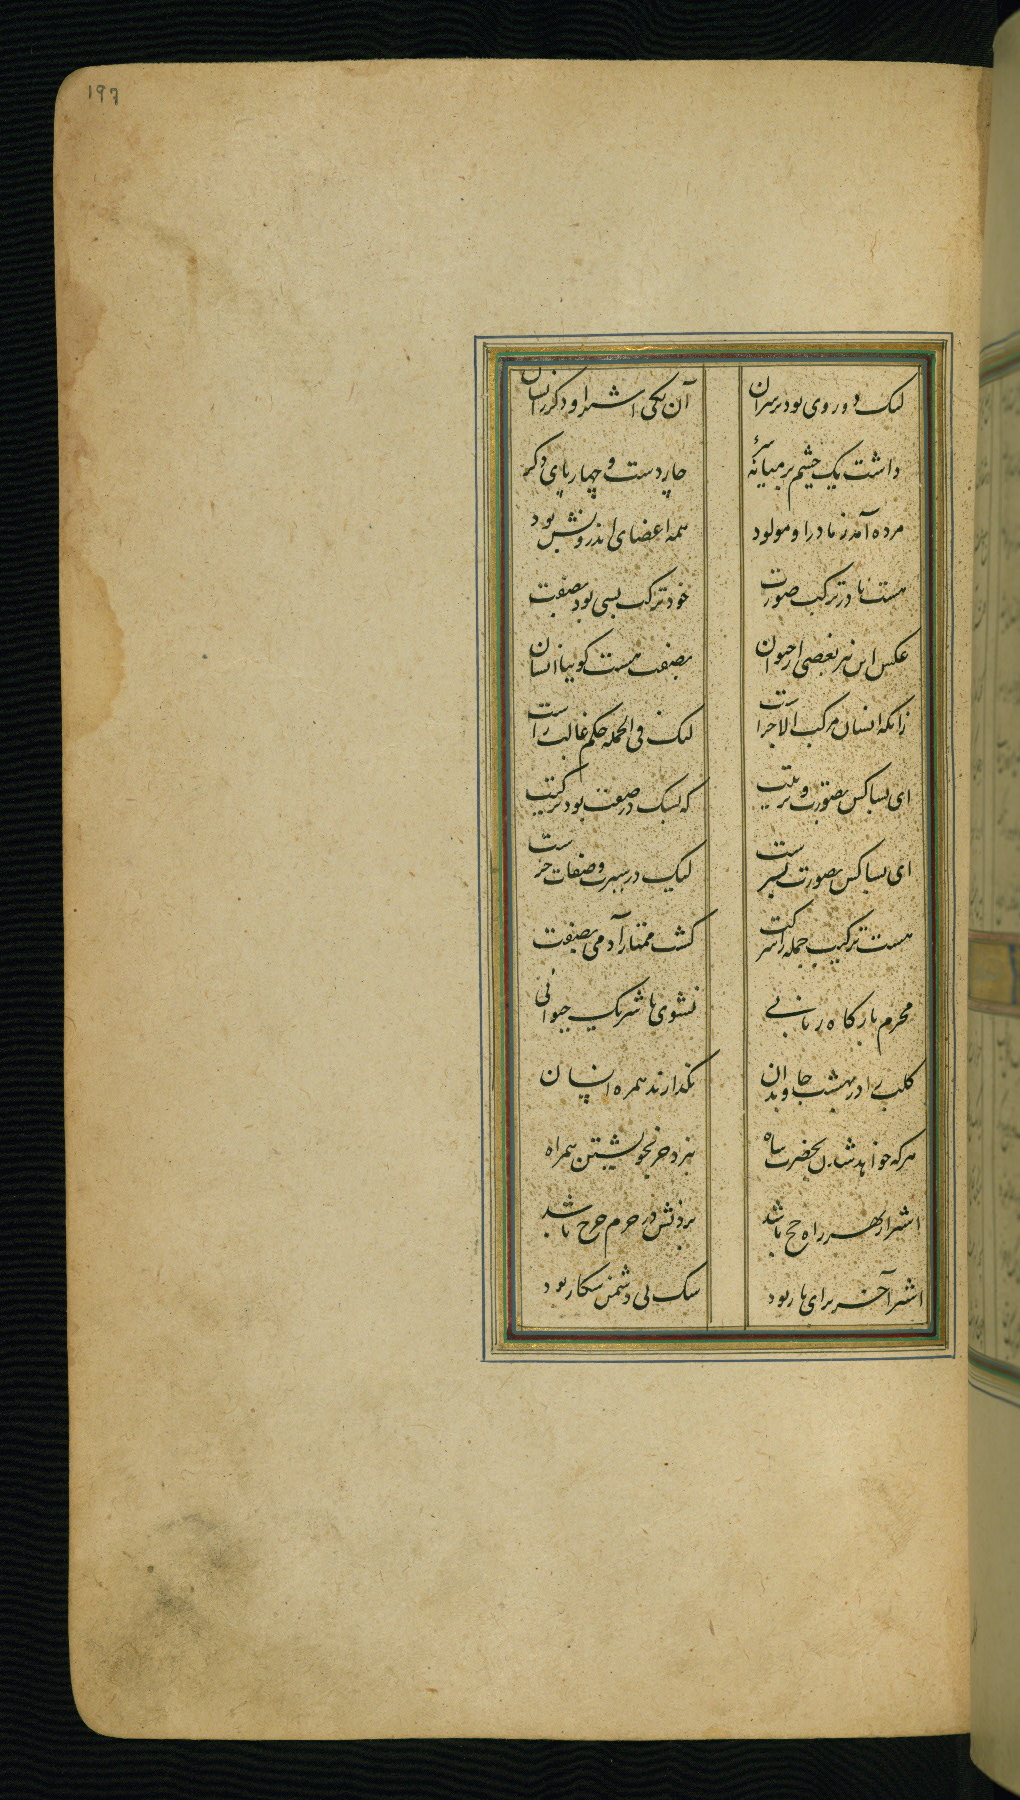 197
لیک دو روی بود بر سر آن آن یکی اشترا و دگر انسان
داشت یک چشم بر میانهٔ سر چار دست و چهار پای دگر
مرده آمد ز مادر او مولود همه اعضای اندرونش بود
هست تا در ترکب صورت خود ترکب بسی بود بصفت
عکس این نیز بعضی از حیوان بصفت هست گوییا انسان
زانکه انسان مرکب الاجزاست لیک فی الجمله حکم غالب راست
ای بسا کس بصورت و تربیت که در صفت بود ترکیت
ای بسا کس بصورت بشرست لیک در سیرت و صفات خرست
هست ترکیب جمله را شرکت گشت ممتاز آدمی بصفت
محرم بارگاه ربانی نشوی با شریک حیوانی
کلب را در بهشت جاویدان نگذارند همره انسان
هرکه خواهد شدن بحضرت شاه نبرد خر بخویشتن همراه
اشتر از بهر راه حج باشد بردنش در حرم حرج باشد
اشتر آخر برای بار بود سگ پی دشمن شکار بود